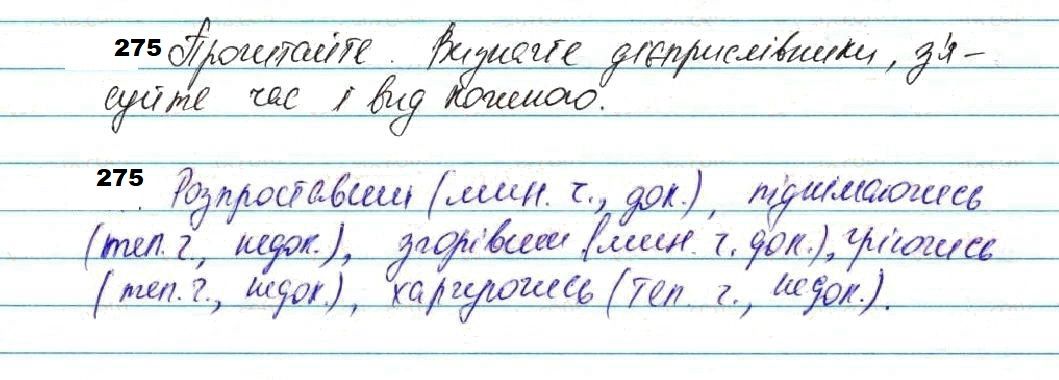 275 Прочитайте. Визначте дієприслівники, з'я-
суйте час і вид кожного.
275 Розпроставши (мин. ч., док.), піднімаючись
(теп. ч., недок.), згорівши (мин. ч. док.), гріючись
(теп. ч., недок.), харчуючись (теп. ч., недок.).